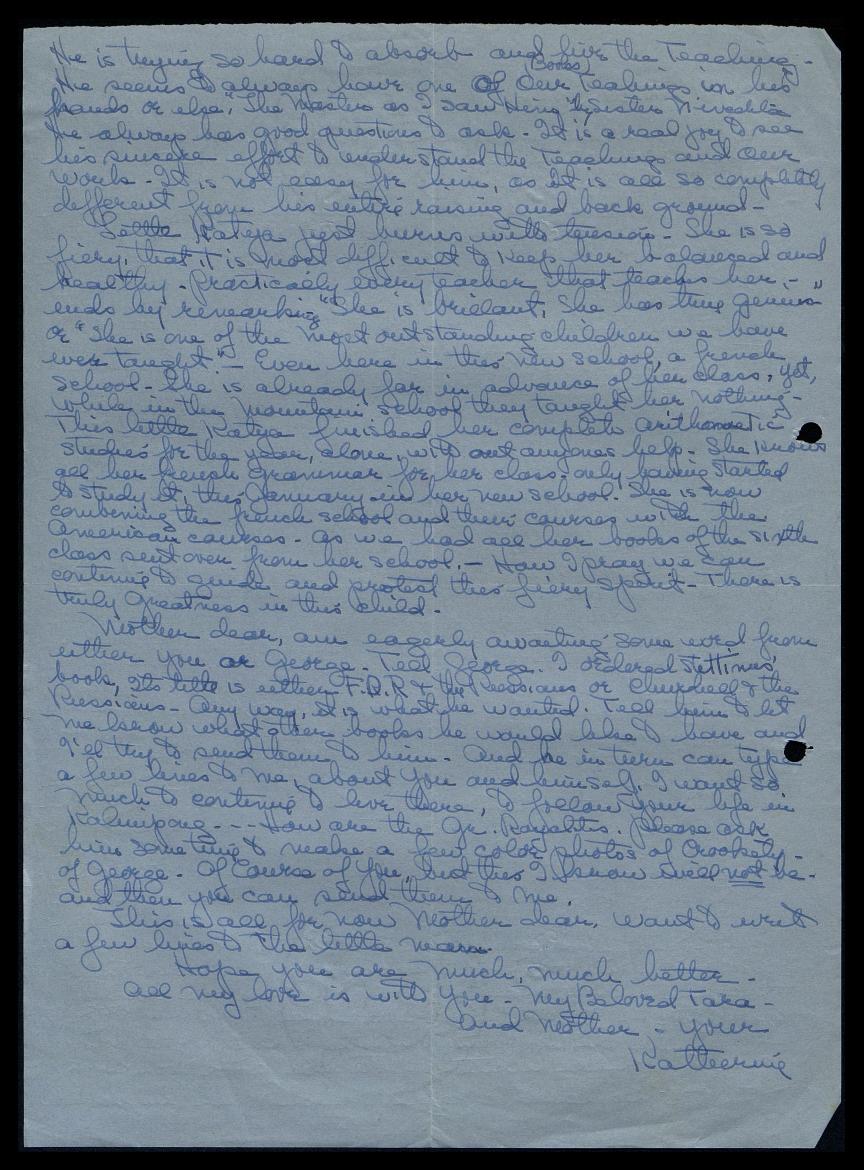 He is trying so hard to absorb and live the Teaching.
He seems to always have one of our Teachings Books in his
hands or else, "The Master as I saw Him" by Sister Nivedita
He always has good questions to ask. It is a real joy to see
his sincere effort to understand the Teachings and our
work. It is not easy for him, as it is all so completely
different from his entire raising and back ground -
Little Katya just burns with tension. She is so
fiery, that it is most difficult to keep her balanced and
healthy. Practically every teacher that teaches her, -
ends by remarking "She is brillant, She has true genius"
or "She is one of the most outstanding children we have
ever taught" - Even here in this new school, a french
school. She is already far in advance of her class, yet,
while in the Mountain school they taught her nothing -
This little Katya finished her complete arithmetic
studies for the year, alone, with out anyones help. She knows
all her french grammar for her class. only having started
to study it, this January in her new school. She is now
combining the french school and their courses with the
American courses. as we had all her books of the sixth
class sent over from her school. - How I pray we can
continue to guide and protect this fiery spirit - There is
truly Greatness in this Child -
Mother dear, am eagerly awaiting some word from
either you or George. Tell George. I ordered Stettinius'
book, Its title is either F.D.R & the Russians or Churchill & the
Russians - Any way, it is what he wanted. Tell him to let
me know what other books he would like to have and
I'll try to send them to him. And he in turn can type
a few lines to me, about you and himself. I want so
much to continue to live there, to follow your life in
Kalimpong --- How are the Gr. Royalties. Please ask
him sometime to make a few color photos of Crookety -
of George. Of Course of You, but this I know will not be -
and then you can send them to me.
This is all for now Mother dear, want to write
a few lines to the little mara.
Hope you are much, much better -
all my love is with you - My Beloved Tara -
and Mother, - your
Katherine